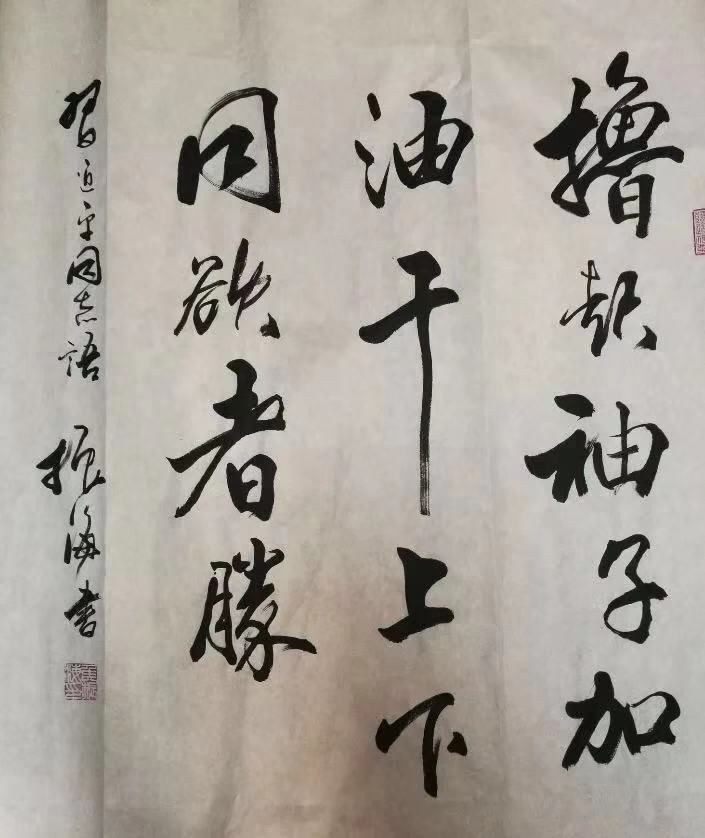 撸起袖子加
油干上下
同欲者勝
習近平同志語 振海書